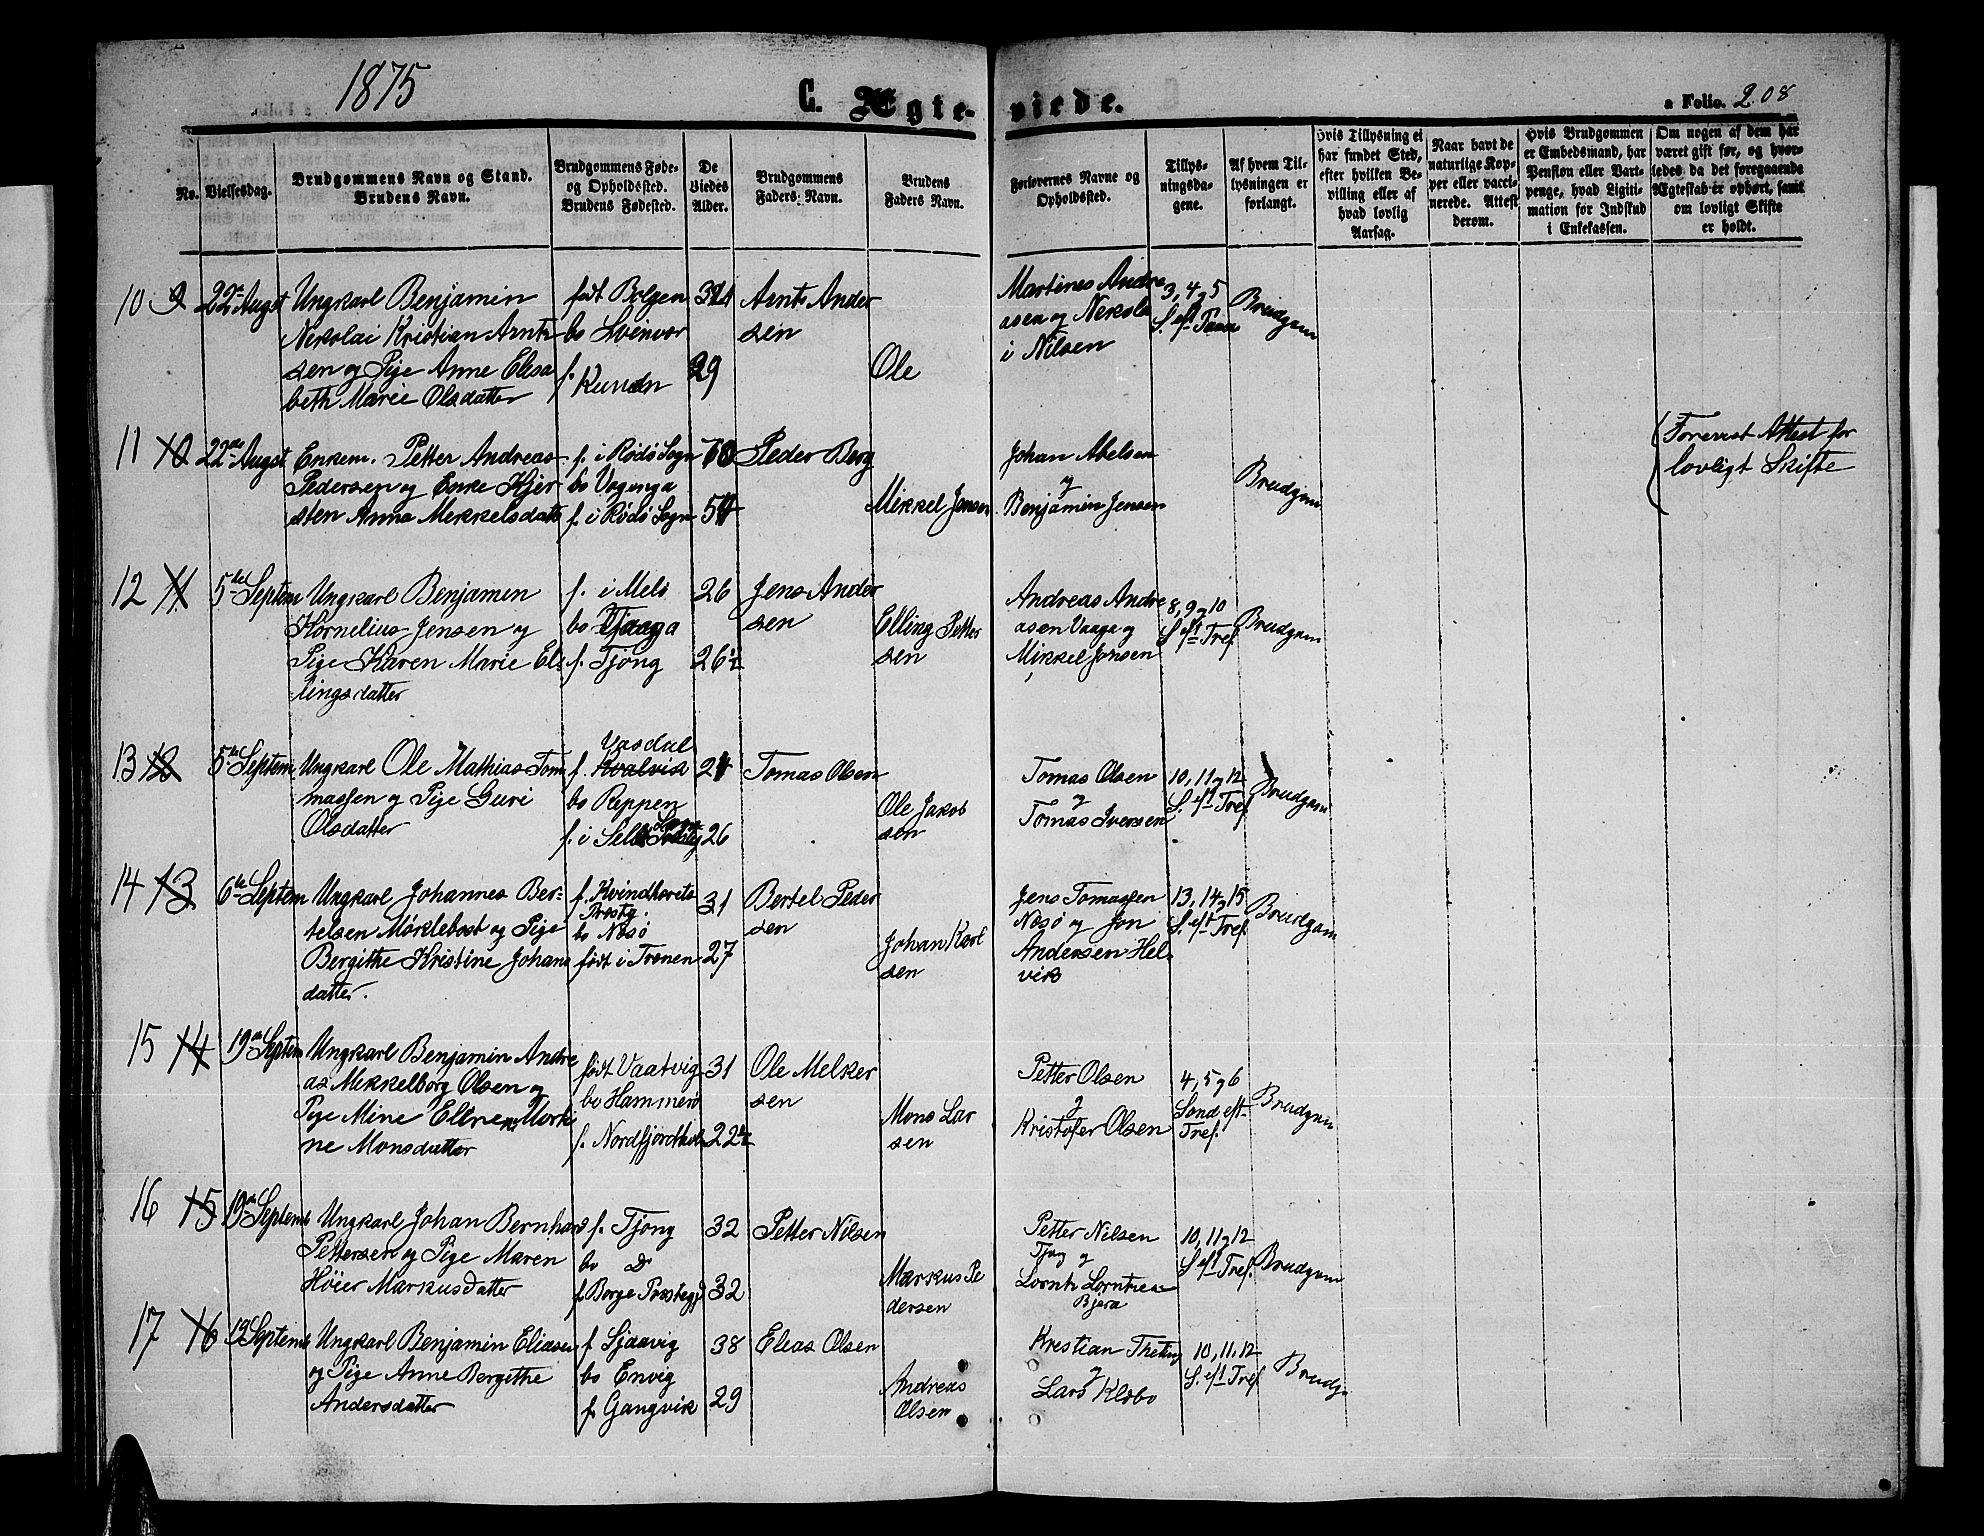 1875
C. Ægte-
viede.
a Folio. 208
No.
Vielsesdag.
Brudgommens Navn og Stand.
Brudens Navn.
Brudgommens Føde-
og Opholdssted.
Brudens Fødested.
De
Viedes
Alder.
Brudgommens
Faders Navn.
Brudens
Faders Navn.
Forlovernes Navne og
Opholdssted.
Tillys-
ningsda-
gene.
Af hvem Til-
lysningen er
forlangt.
Hvis Tillysning ei
har fundet Sted,
efter hvilken Be-
villing eller af
hvad lovlig
Aarsag.
Naar havt de
naturlige Kop-
per eller vacci-
nerede. Attest
derom.
Hvis Brudgommen
er Embedsmand, har
Pension eller Vart-
penge, hvad Ligiti-
mation for Indskud
i Enkekassen.
Om nogen af dem har
været gift før, og hvor-
ledes da det foregaaende
Ægteskab er ophørt, samt
om lovligt Skifte
er holdt.
10 9
22de Augst
Ungkarl Benjamin
Nikolai Kristian Arnt
sen og Pige Anne Elisa
beth Marie Olsdatter
født Bolgen
bo Svinvor
f.
29
Arnt Ander
sen
Ole
Martines Andre
asen og Nikola
i Nilsen
3, 4, 5
S. eft.
Brudgom
11 10
22de Augst
Enkem. Petter Andreas
Pedersen og Enke Kjer
sten Anna Mikkelsdatt
f. i Rødø Sogn
bo Vaganga
f. i Rødø Sogn
70
Peder Berg
Mikkel Jensen
Johan Abelsen
og
Benjamin Jensen
Brudgom
Forevist Attest for
lovligt Skifte
12 11
5te Septem
Ungkarl Benjamin
Kornelius Jensen og
Pige Karen Marie El
lingsdatter
f. i Melø
bo
f. Tjong
26
26½
Jens Ander
sen
Elling Petter
sen
Andreas Andre
asen Vaaga og
Mikkel Jensen
8, 9 og 10
S. eft. Tref
Brudgom
13 12
5te Septem
Ungkarl Ole Mathias Tom
massen og Pige Guri
Olsdatter
Vasdal
f. Kvalvik
bo Reppen
f. i
26
Tomas Olsen
Ole Jakob
sen
Tomas Olsen
og
Tomas Iversen
10, 11 og 12
S. eft. Tref
Brudgom
14 13
6te Septem
Ungkarl Johannes Ber-
telsen Mørklebost og Pige
Bergithe Kristine Johans
datter.
f. Kvindherets
Prestg.
bo Nesø
født i Trænen
31
27
Bertel Peder
sen
Johan Karl
sen
Jens Tomassen
Nesø og Jon
Andersen Hel
vik
13, 14 og 15
S. eft. Tref
Brudgom
15 14
19de Septem
Ungkarl Benjamin Andre
as Mikkelborg Olsen og
Pige Mine Ellren Mort
ne Monsdatter
født Vaatvig
bo Hammerø
f. Nordfjordhol
31
22½
Ole Melker
sen
Mons Lar
sen
Petter Olsen
og
Kristofer Olsen
4, 5 og 6
Sond eft.
Tref.
Brudgom
16 15
19de Septemb
Ungkarl Johan Bernhard
Pettersen og Pige Maren
Høier Markusdatter
f. Tjong
bo Do
f. Borge Prestegj
32
32
Petter Nilsen
Markus Pe
dersen
Petter Nilsen
Tjong og
Lornts Lorntsen
Bjera
10, 11 og 12
S. eft. Tref.
Brudgom
17 16
Septemb
Ungkarl Benjamin Eliasen
og Pige Anne Bergithe
Andersdatter
f. Sjaavig
bo Envig
f. Gangvik
38
29
Elias Olsen
Andreas
Olsen
Krestian Theting
og
Lars Klæbo
10, 11, 12
S. eft. Tref
Brudg